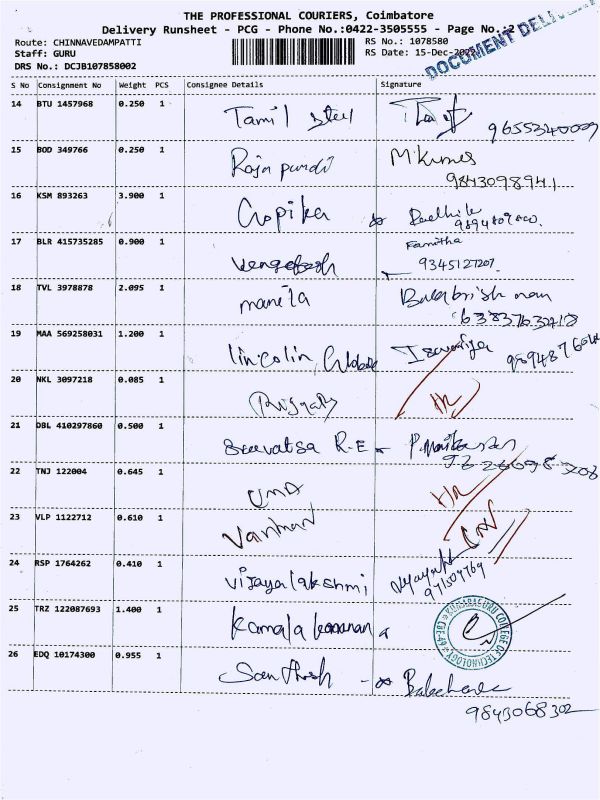 THE PROFESSIONAL COURIERS, Coimbatore
Delivery Runsheet - PCG - Phone No.:0422-3505555 - Page No.:2
DOCUMENT
Route: CHINNAVEDAMPATTI
RS No.: 1078580
Staff: GURU
RS Date: 15-Dec-2022
DRS No.: DCJB107858002
S No Consignment No Weight PCS Consignee Details Signature
14 BTU 1457968 0.250 1 Tamil steel
9655340009
15 BOD 349766 0.250 1 Raja pandi
9843098941
16 KSM 893263 3.900 1 Gopika
17 BLR 415735285 0.900 1
9345127207
18 TVL 3978878 2.095 1 manila Balakrishnan
6383763418
19 MAA 569258031 1.200 1 lincolin
20 NKL 3097218 0.085 1
21 DBL 410297860 0.500 1 Sreevatsa R.E
22 TNJ 122004 0.645 1
23 VLP 1122712 0.610 1 Varman
24 RSP 1764262 0.410 1 vijayalakshmi
25 TRZ 122087693 1.400 1 Kamala kannan
COLLEGE OF TECHNOLOGY
26 EDQ 10174300 0.955 1 Santhosh
9843068302